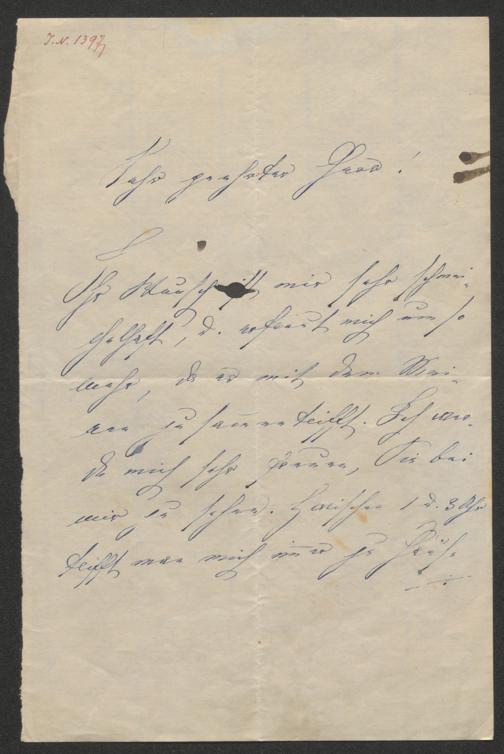 I.N. 1397
Sehr geehrter Herr!
Ihr Wunsch ist mir sehr schmei-
chelhaft, u. erfreut mich um so
mehr, da er mit dem Mei-
nen zusammentrifft. Ich wer-
de mich sehr freuen, Sie bei
mir zu sehen. Zwischen 1 u. 3 Uhr
trifft man mich immer zu Hause